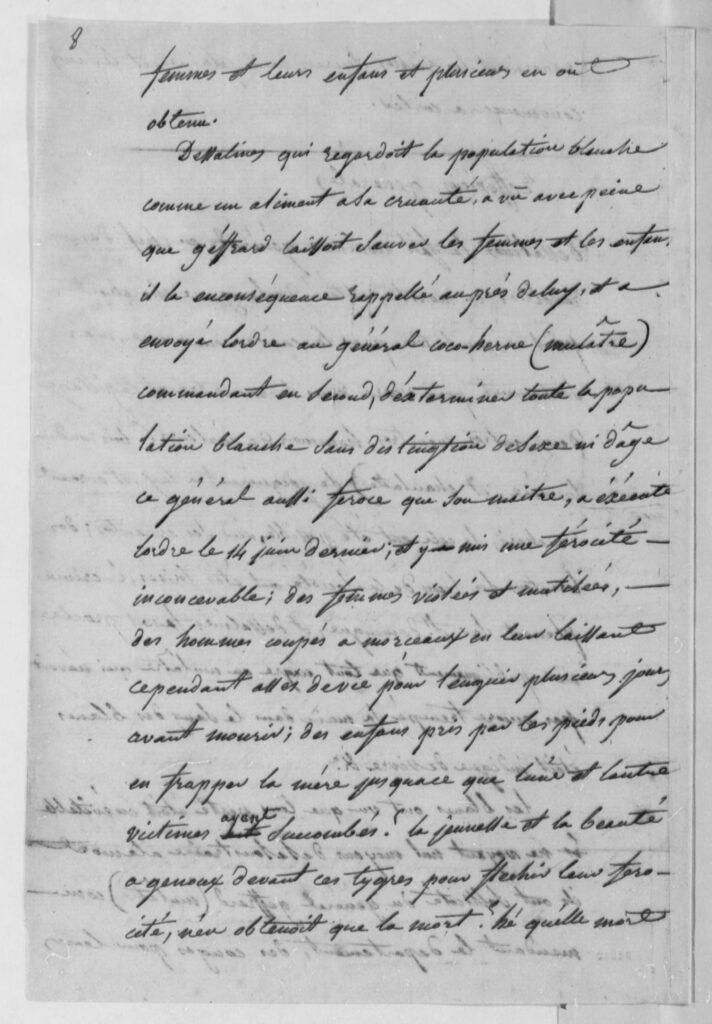 8
femmes et leurs enfans et plusieurs en ont
obtenu.
Dessalines qui regardoit la population blanche
comme un aliment a sa cruauté, a vû avec peine
que géffrard laissoit sauver les femmes et les enfans,
il la enconséquence rappellé auprés deluy, et a
envoyé lordre au général coco-herne (mulâtre)
commandant en second, déxterminer toute la popu-
lation blanche sans distinqtion desexe ni dâge
ce général aussi feroce que son maitre, a éxécuté
lordre le 14 juin dernier; et y a mis une férocité -
inconcevable; des femmes violées et mutilées, -
des hommes coupés a morceaux en leur laissant
cependant assés devie pour languir plusieurs jours
avant mourir; des enfans pris par les pieds pour
en frapper la mére jusquace que lune et lautre
victimes ayent succombés! la jeunesse et la beauté
a genoux devant ces tygres pour flechir leur fero-
cité, n'en obtenoit que la mort! hé quelle mort